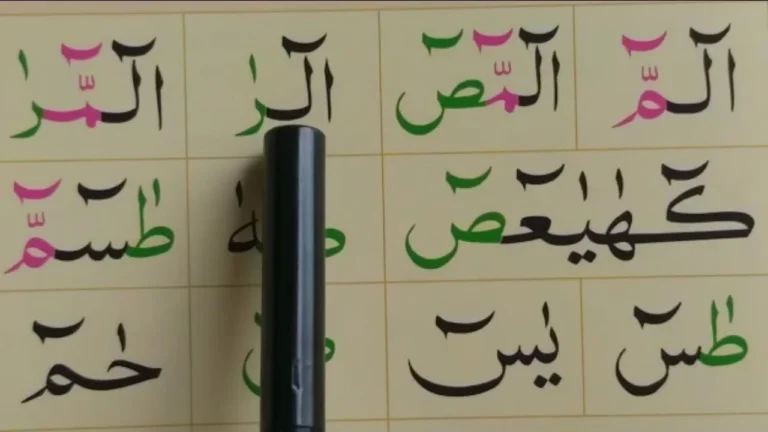 الٓمّٓ الٓمّٓصٓ الٓرٰ الٓمّٓرٰ
كٓهٰيٰعٓصٓ طٰسٓمّٓ
طٰسٓ يٰسٓ حٰمٓ